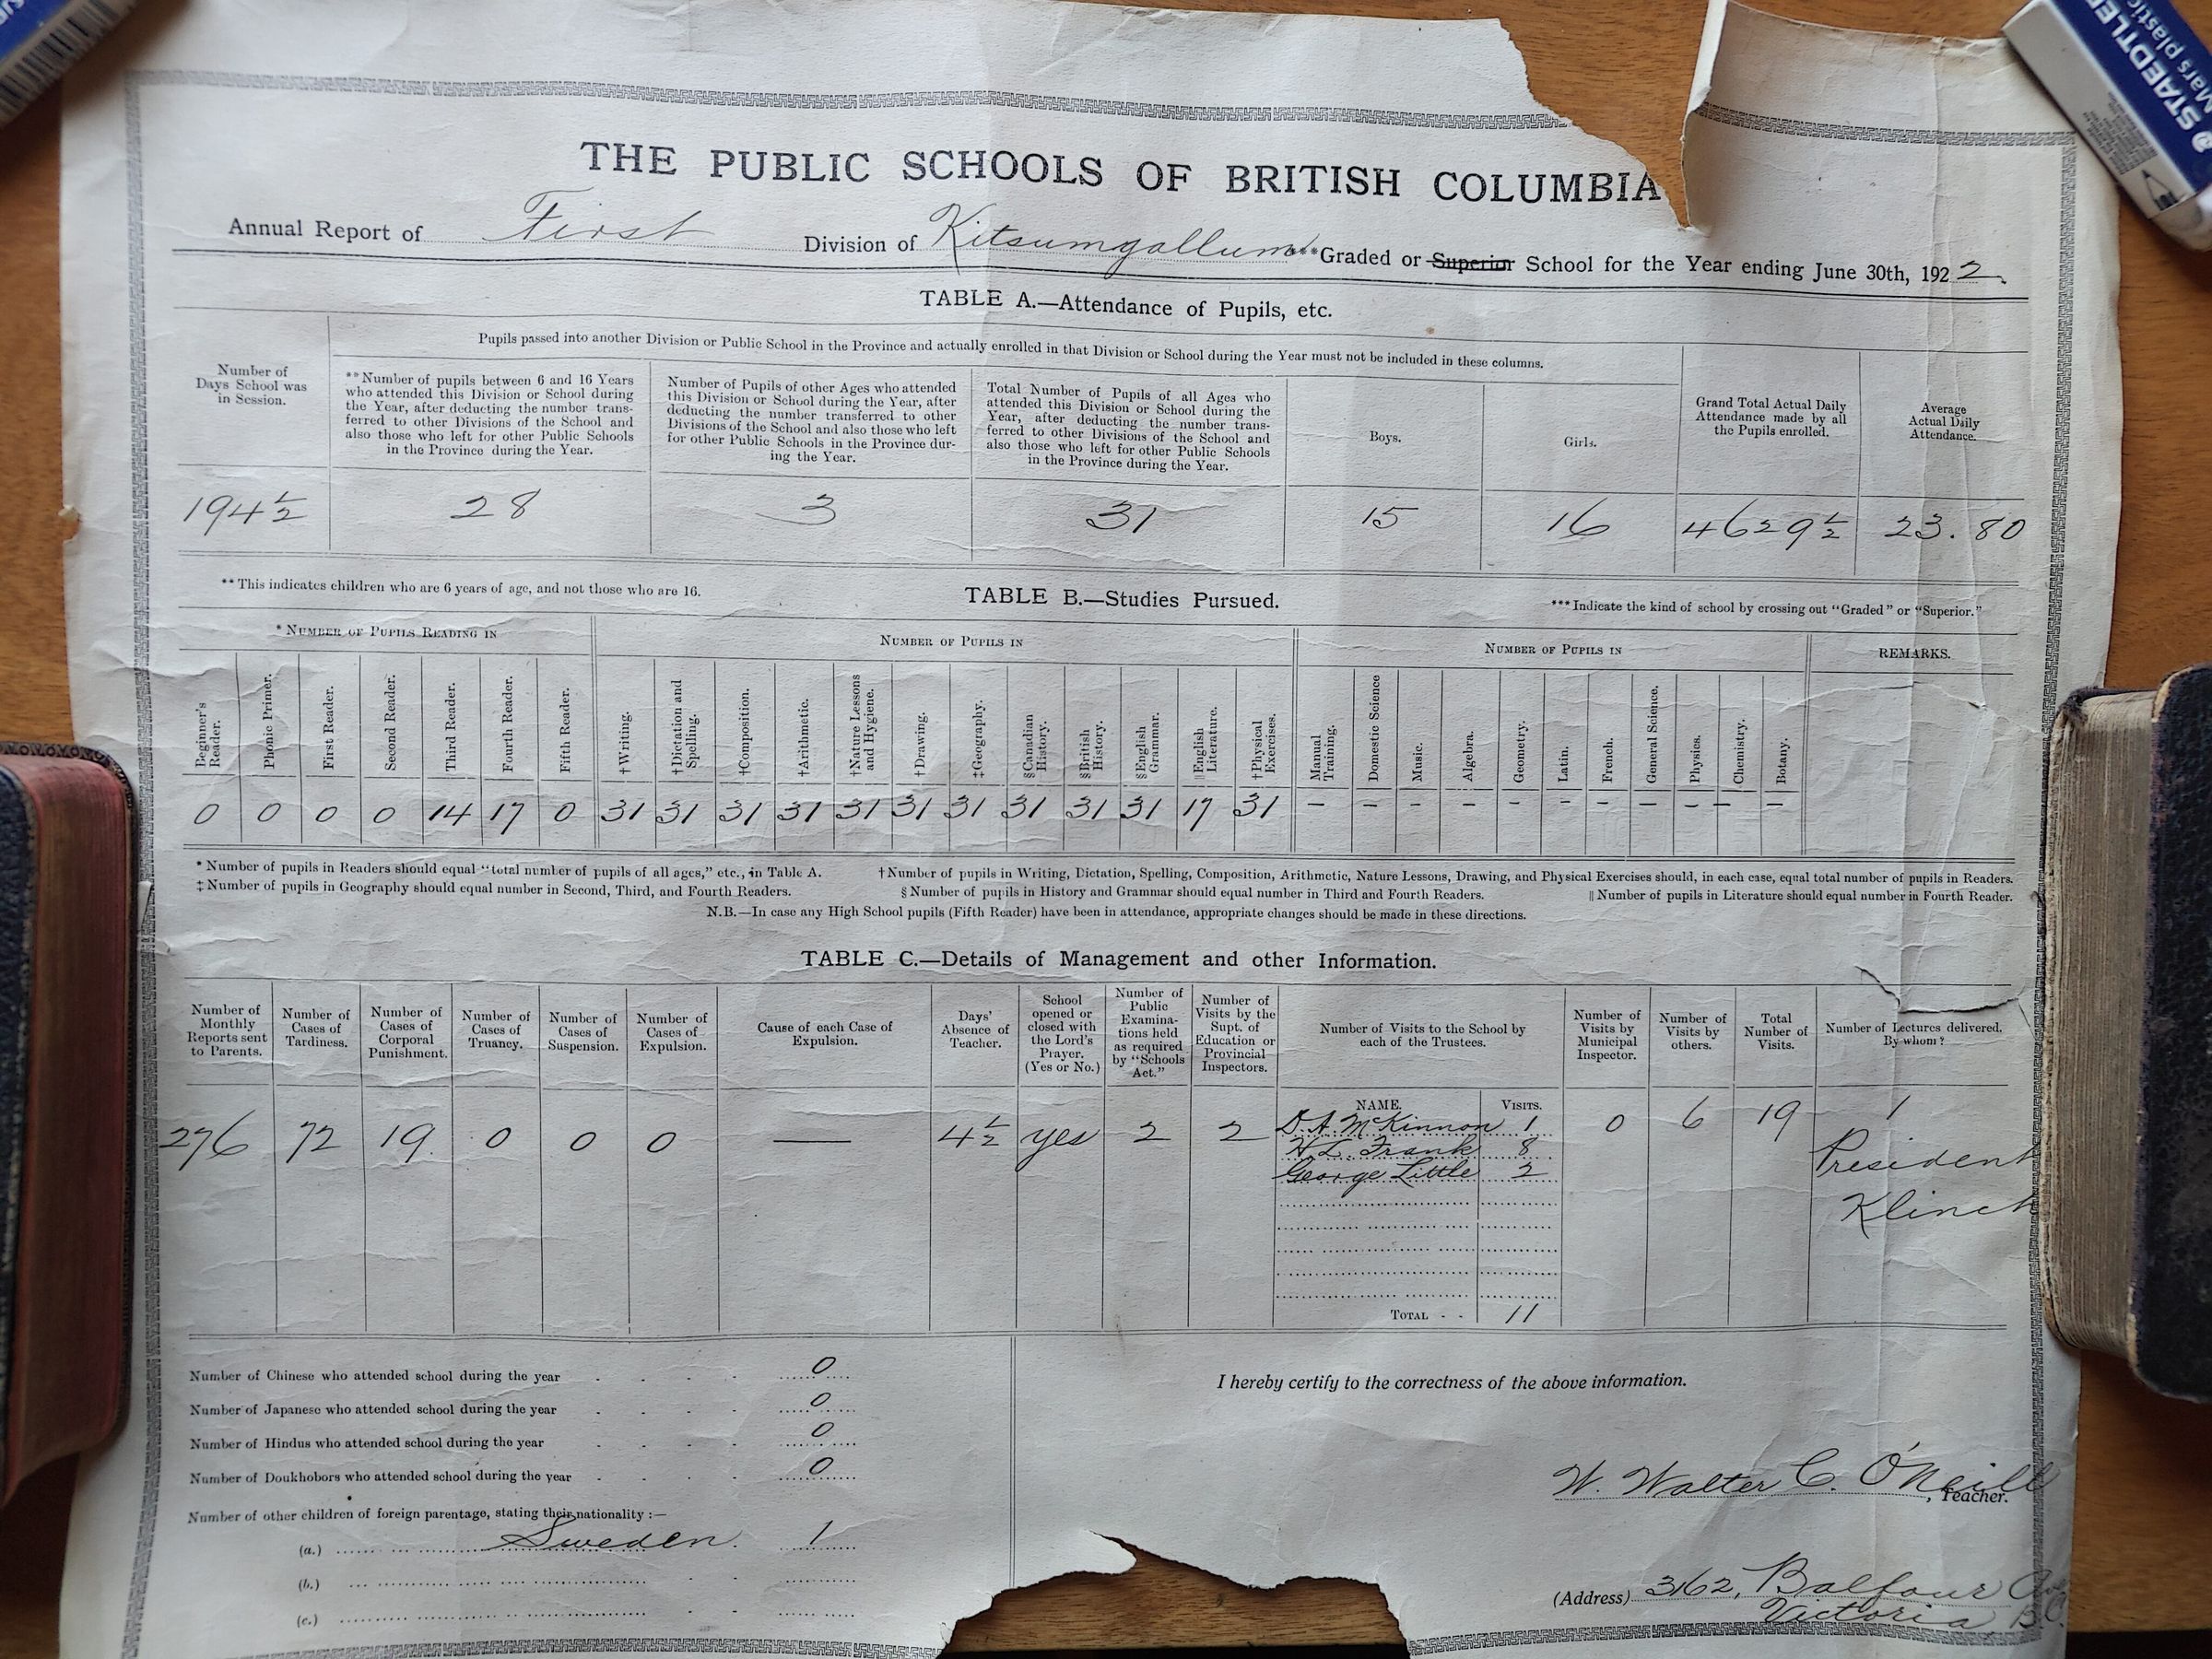 STAEDTLER
Mars plastic
THE PUBLIC SCHOOLS OF BRITISH COLUMBIA
Annual Report of First Division of Kitsumgallum ***Graded or Superior School for the Year ending June 30th, 1922
TABLE A.—Attendance of Pupils, etc.
Pupils passed into another Division or Public School in the Province and actually enrolled in that Division or School during the Year must not be included in these columns.
Number of
Days School was
in Session.
**Number of pupils between 6 and 16 Years
who attended this Division or School during
the Year, after deducting the number trans-
ferred to other Divisions of the School and
also those who left for other Public Schools
in the Province during the Year.
Number of Pupils of other Ages who attended
this Division or School during the Year, after
deducting the number transferred to other
Divisions of the School and also those who left
for other Public Schools in the Province dur-
ing the Year.
Total Number of Pupils of all Ages who
attended this Division or School during the
Year, after deducting the number trans-
ferred to other Divisions of the School and
also those who left for other Public Schools
in the Province during the Year.
Boys.
Girls.
Grand Total Actual Daily
Attendance made by all
the Pupils enrolled.
Average
Actual Daily
Attendance.
194½ 28 3 31 15 16 4629½ 23.80
**This indicates children who are 6 years of age, and not those who are 16.
TABLE B.—Studies Pursued.
***Indicate the kind of school by crossing out "Graded" or "Superior."
* NUMBER OF PUPILS READING IN
NUMBER OF PUPILS IN
NUMBER OF PUPILS IN
REMARKS.
Beginner's
Reader.
Phonic Primer.
First Reader.
Second Reader.
Third Reader.
Fourth Reader.
Fifth Reader.
†Writing.
†Dictation and
Spelling.
†Composition.
†Arithmetic.
†Nature Lessons
and Hygiene.
†Drawing.
‡Geography.
§Canadian
History.
§British
History.
§English
Grammar.
‖English
Literature.
†Physical
Exercises.
Manual
Training.
Domestic Science
Music.
Algebra.
Geometry.
Latin.
French.
General Science.
Physics.
Chemistry.
Botany.
0 0 0 0 14 17 0 31 31 31 31 31 31 31 31 31 31 17 31 – – – – – – – – – – –
* Number of pupils in Readers should equal "total number of pupils of all ages," etc., in Table A. †Number of pupils in Writing, Dictation, Spelling, Composition, Arithmetic, Nature Lessons, Drawing, and Physical Exercises should, in each case, equal total number of pupils in Readers.
‡Number of pupils in Geography should equal number in Second, Third, and Fourth Readers. §Number of pupils in History and Grammar should equal number in Third and Fourth Readers. ‖Number of pupils in Literature should equal number in Fourth Reader.
N.B.—In case any High School pupils (Fifth Reader) have been in attendance, appropriate changes should be made in these directions.
TABLE C.—Details of Management and other Information.
Number of
Monthly
Reports sent
to Parents.
Number of
Cases of
Tardiness.
Number of
Cases of
Corporal
Punishment.
Number of
Cases of
Truancy.
Number of
Cases of
Suspension.
Number of
Cases of
Expulsion.
Cause of each Case of
Expulsion.
Days'
Absence of
Teacher.
School
opened or
closed with
the Lord's
Prayer.
(Yes or No.)
Number of
Public
Examina-
tions held
as required
by "Schools
Act."
Number of
Visits by the
Supt. of
Education or
Provincial
Inspectors.
Number of Visits to the School by
each of the Trustees.
Number of
Visits by
Municipal
Inspector.
Number of
Visits by
others.
Total
Number of
Visits.
Number of Lectures delivered.
By whom?
NAME. VISITS.
276 72 19 0 0 0 — 4½ yes 2 2
D.A. McKinnon 1
H.L. Frank 8
George Little 2
TOTAL - - 11
0 6 19
1
President
Klinck
Number of Chinese who attended school during the year - - - - 0
Number of Japanese who attended school during the year - - - - 0
Number of Hindus who attended school during the year - - - - 0
Number of Doukhobors who attended school during the year - - - - 0
Number of other children of foreign parentage, stating their nationality :—
(a.) Sweden. 1
(b.)
(c.)
I hereby certify to the correctness of the above information.
W. Walter C. O'Neill
, Teacher.
(Address) 3162, Balfour Ave
Victoria, B.C.